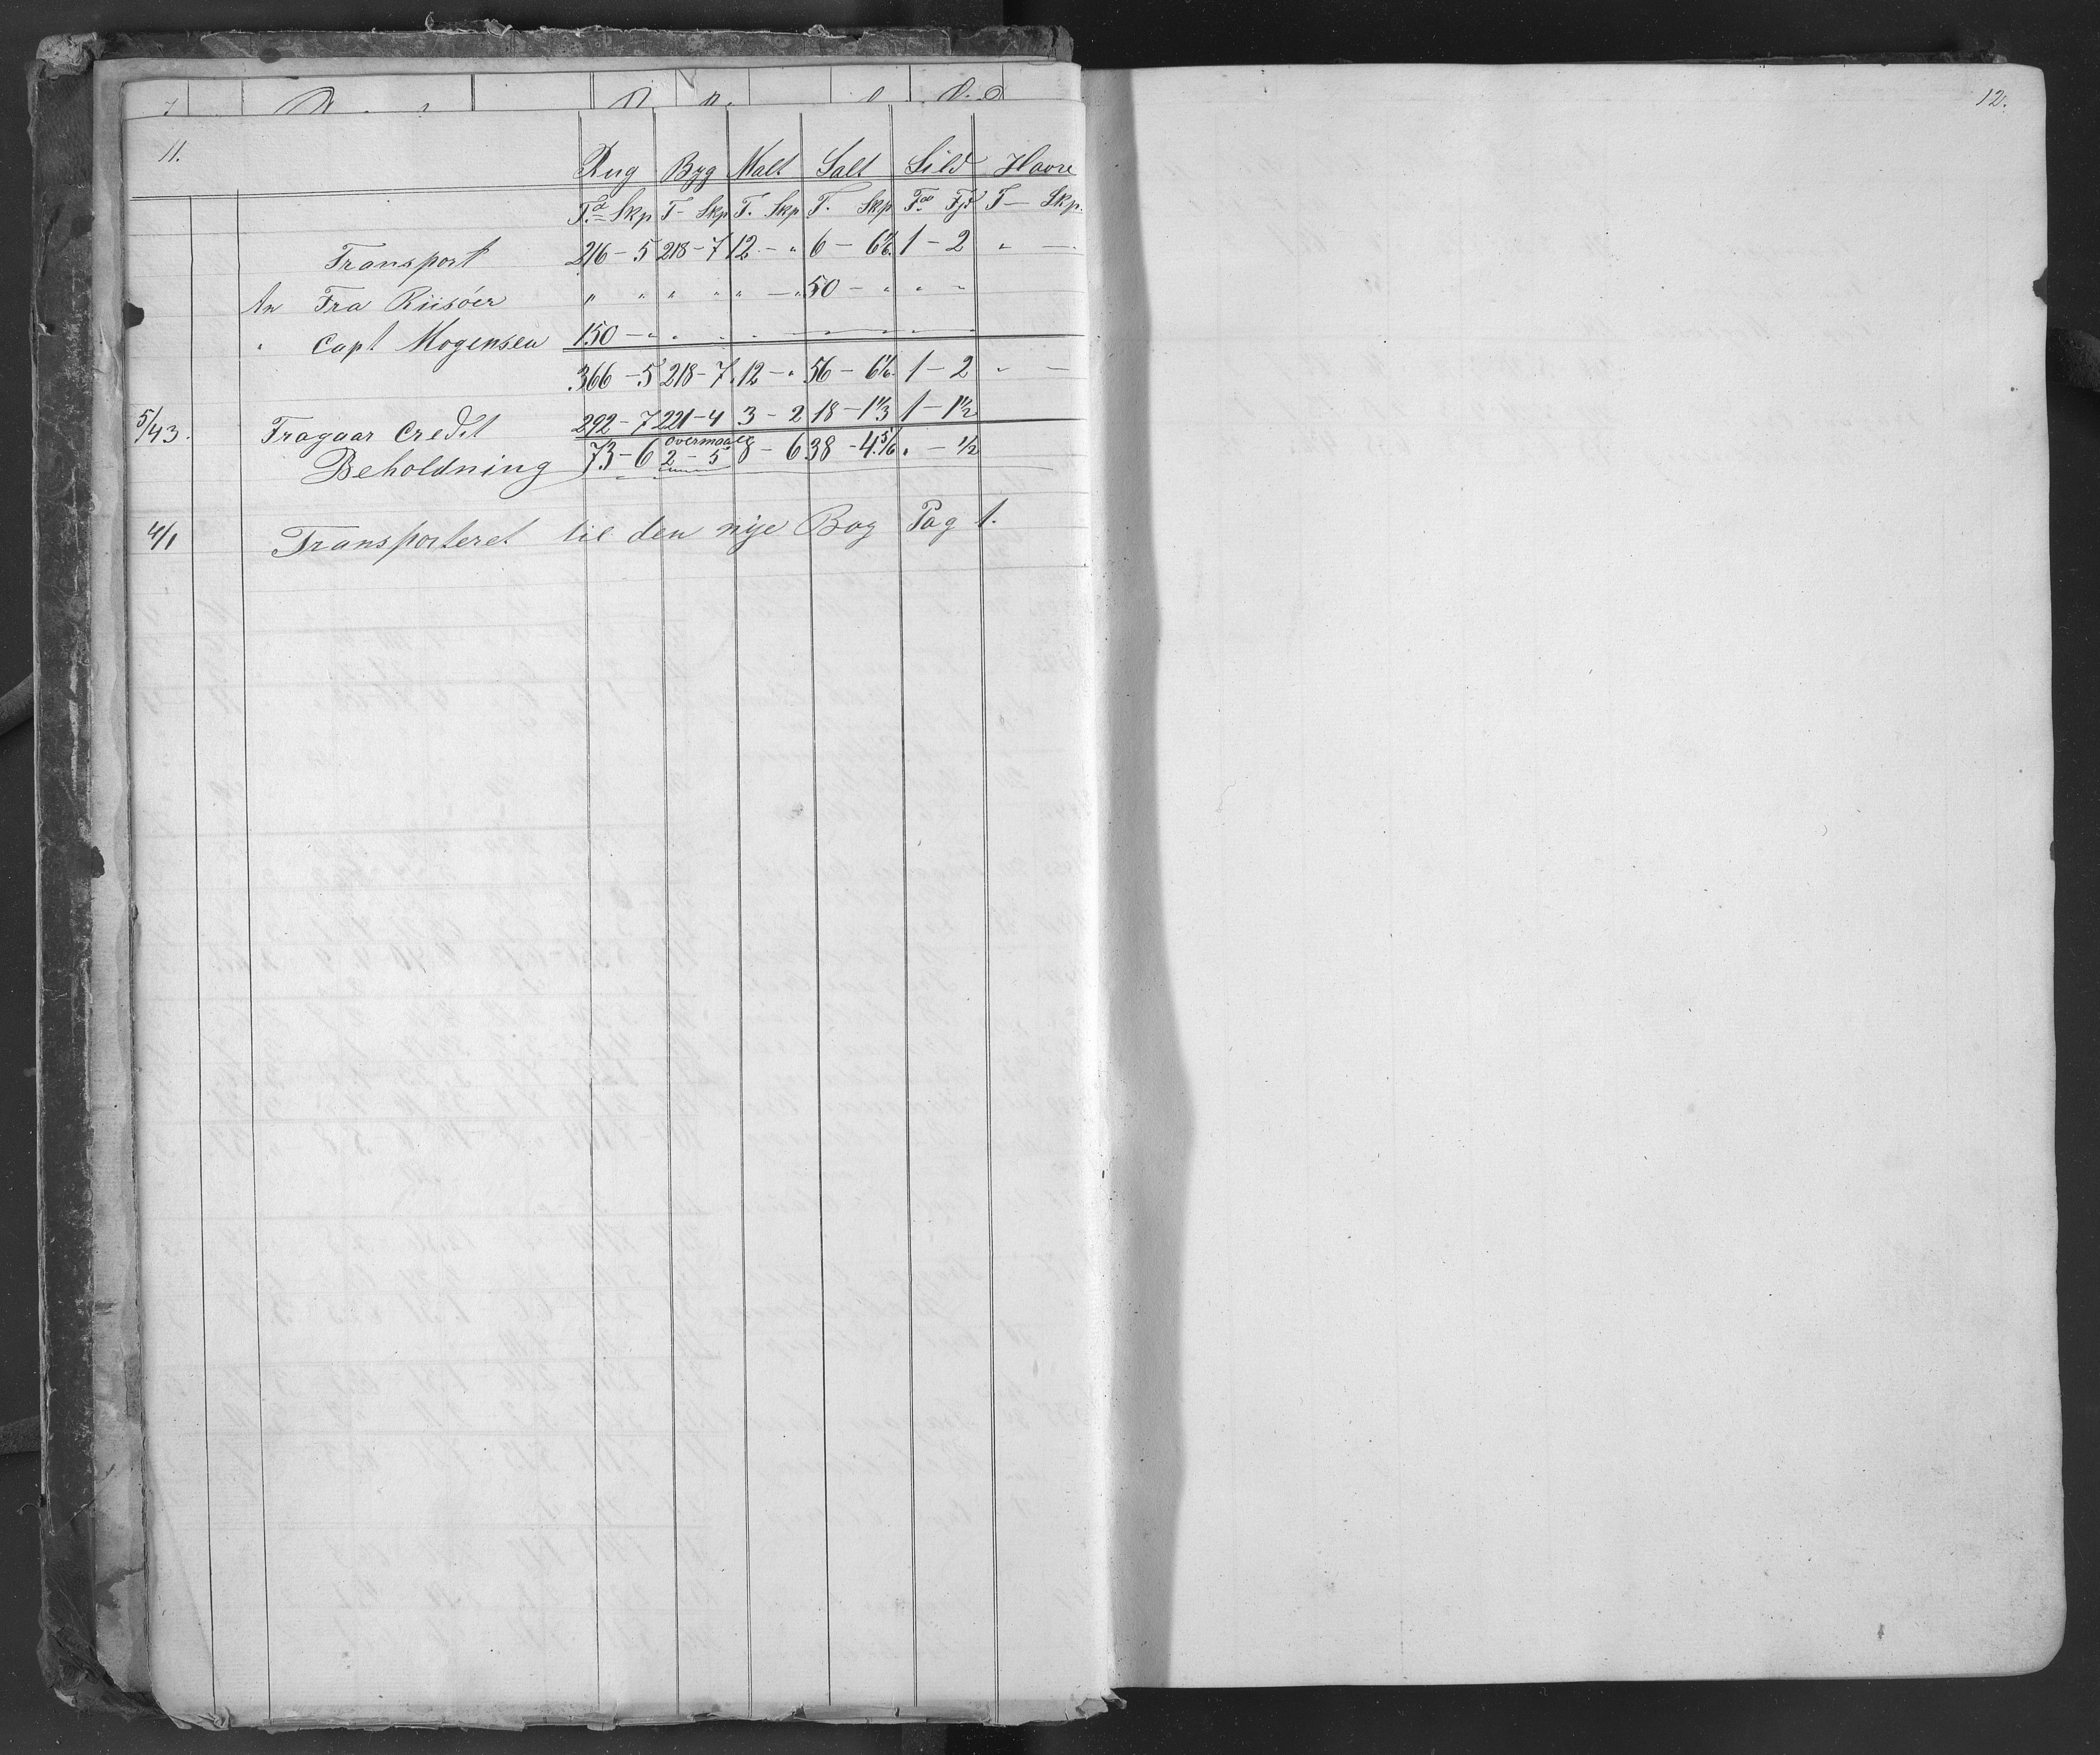 11.
Rug Byg Malt Salt Sild Havre
Td Skp T - Skp T. Skp T. Skp Fd Fjd T - Skp.
Transport 216 - 5 218 - 7 12 - " 6 - 6 1/6 1 - 2 " -
An Fra Riisöer " " " " " - " 50 - " " -
" Capt Mogensen 150 - " " " "
366 - 5 218 - 7 12 - " 56 - 6 1/6 1 - 2 " -
5/43. Fragaar Credit 292 - 7 221 - 4 3 - 2 18 - 1 1/3 1 - 1 1/2
Beholdning 73 - 6 overmaale 2 - 5 8 - 6 38 - 4 5/6 " - 1/2
4/1 Transporteret til den nye Bog Pag 1.
12.